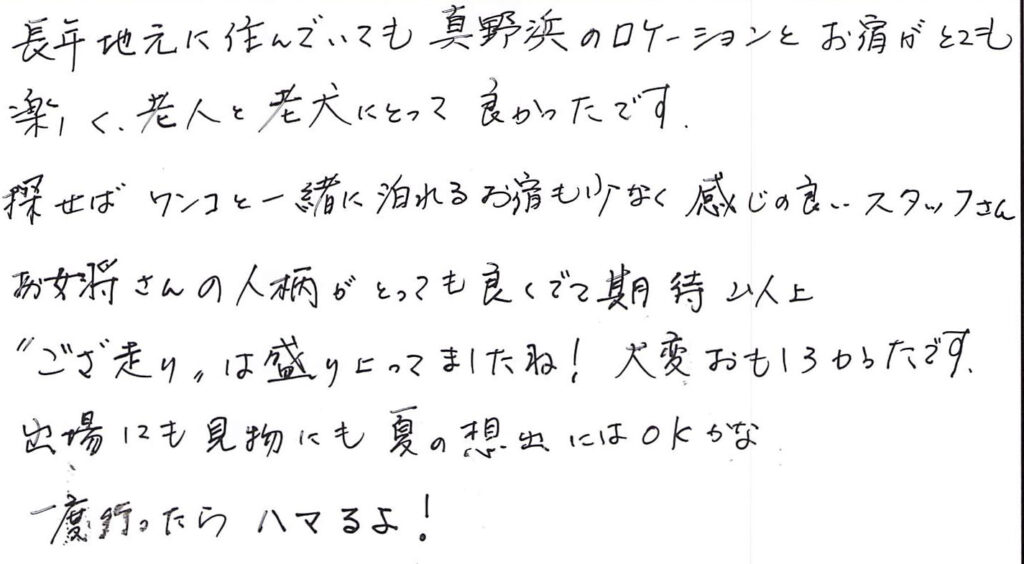 長年地元に住んでいても真野浜のロケーションとお宿がとても
楽しく、老人と老犬にとって良かったです.
探せばワンコと一緒に泊れるお宿も少なく感じの良いスタッフさん
お女将さんの人柄がとっても良くでて期待以上
"ござ走り"は盛り上ってましたね！大変おもしろかったです.
出場にも見物にも夏の想出にはOKかな
一度行ったらハマるよ！